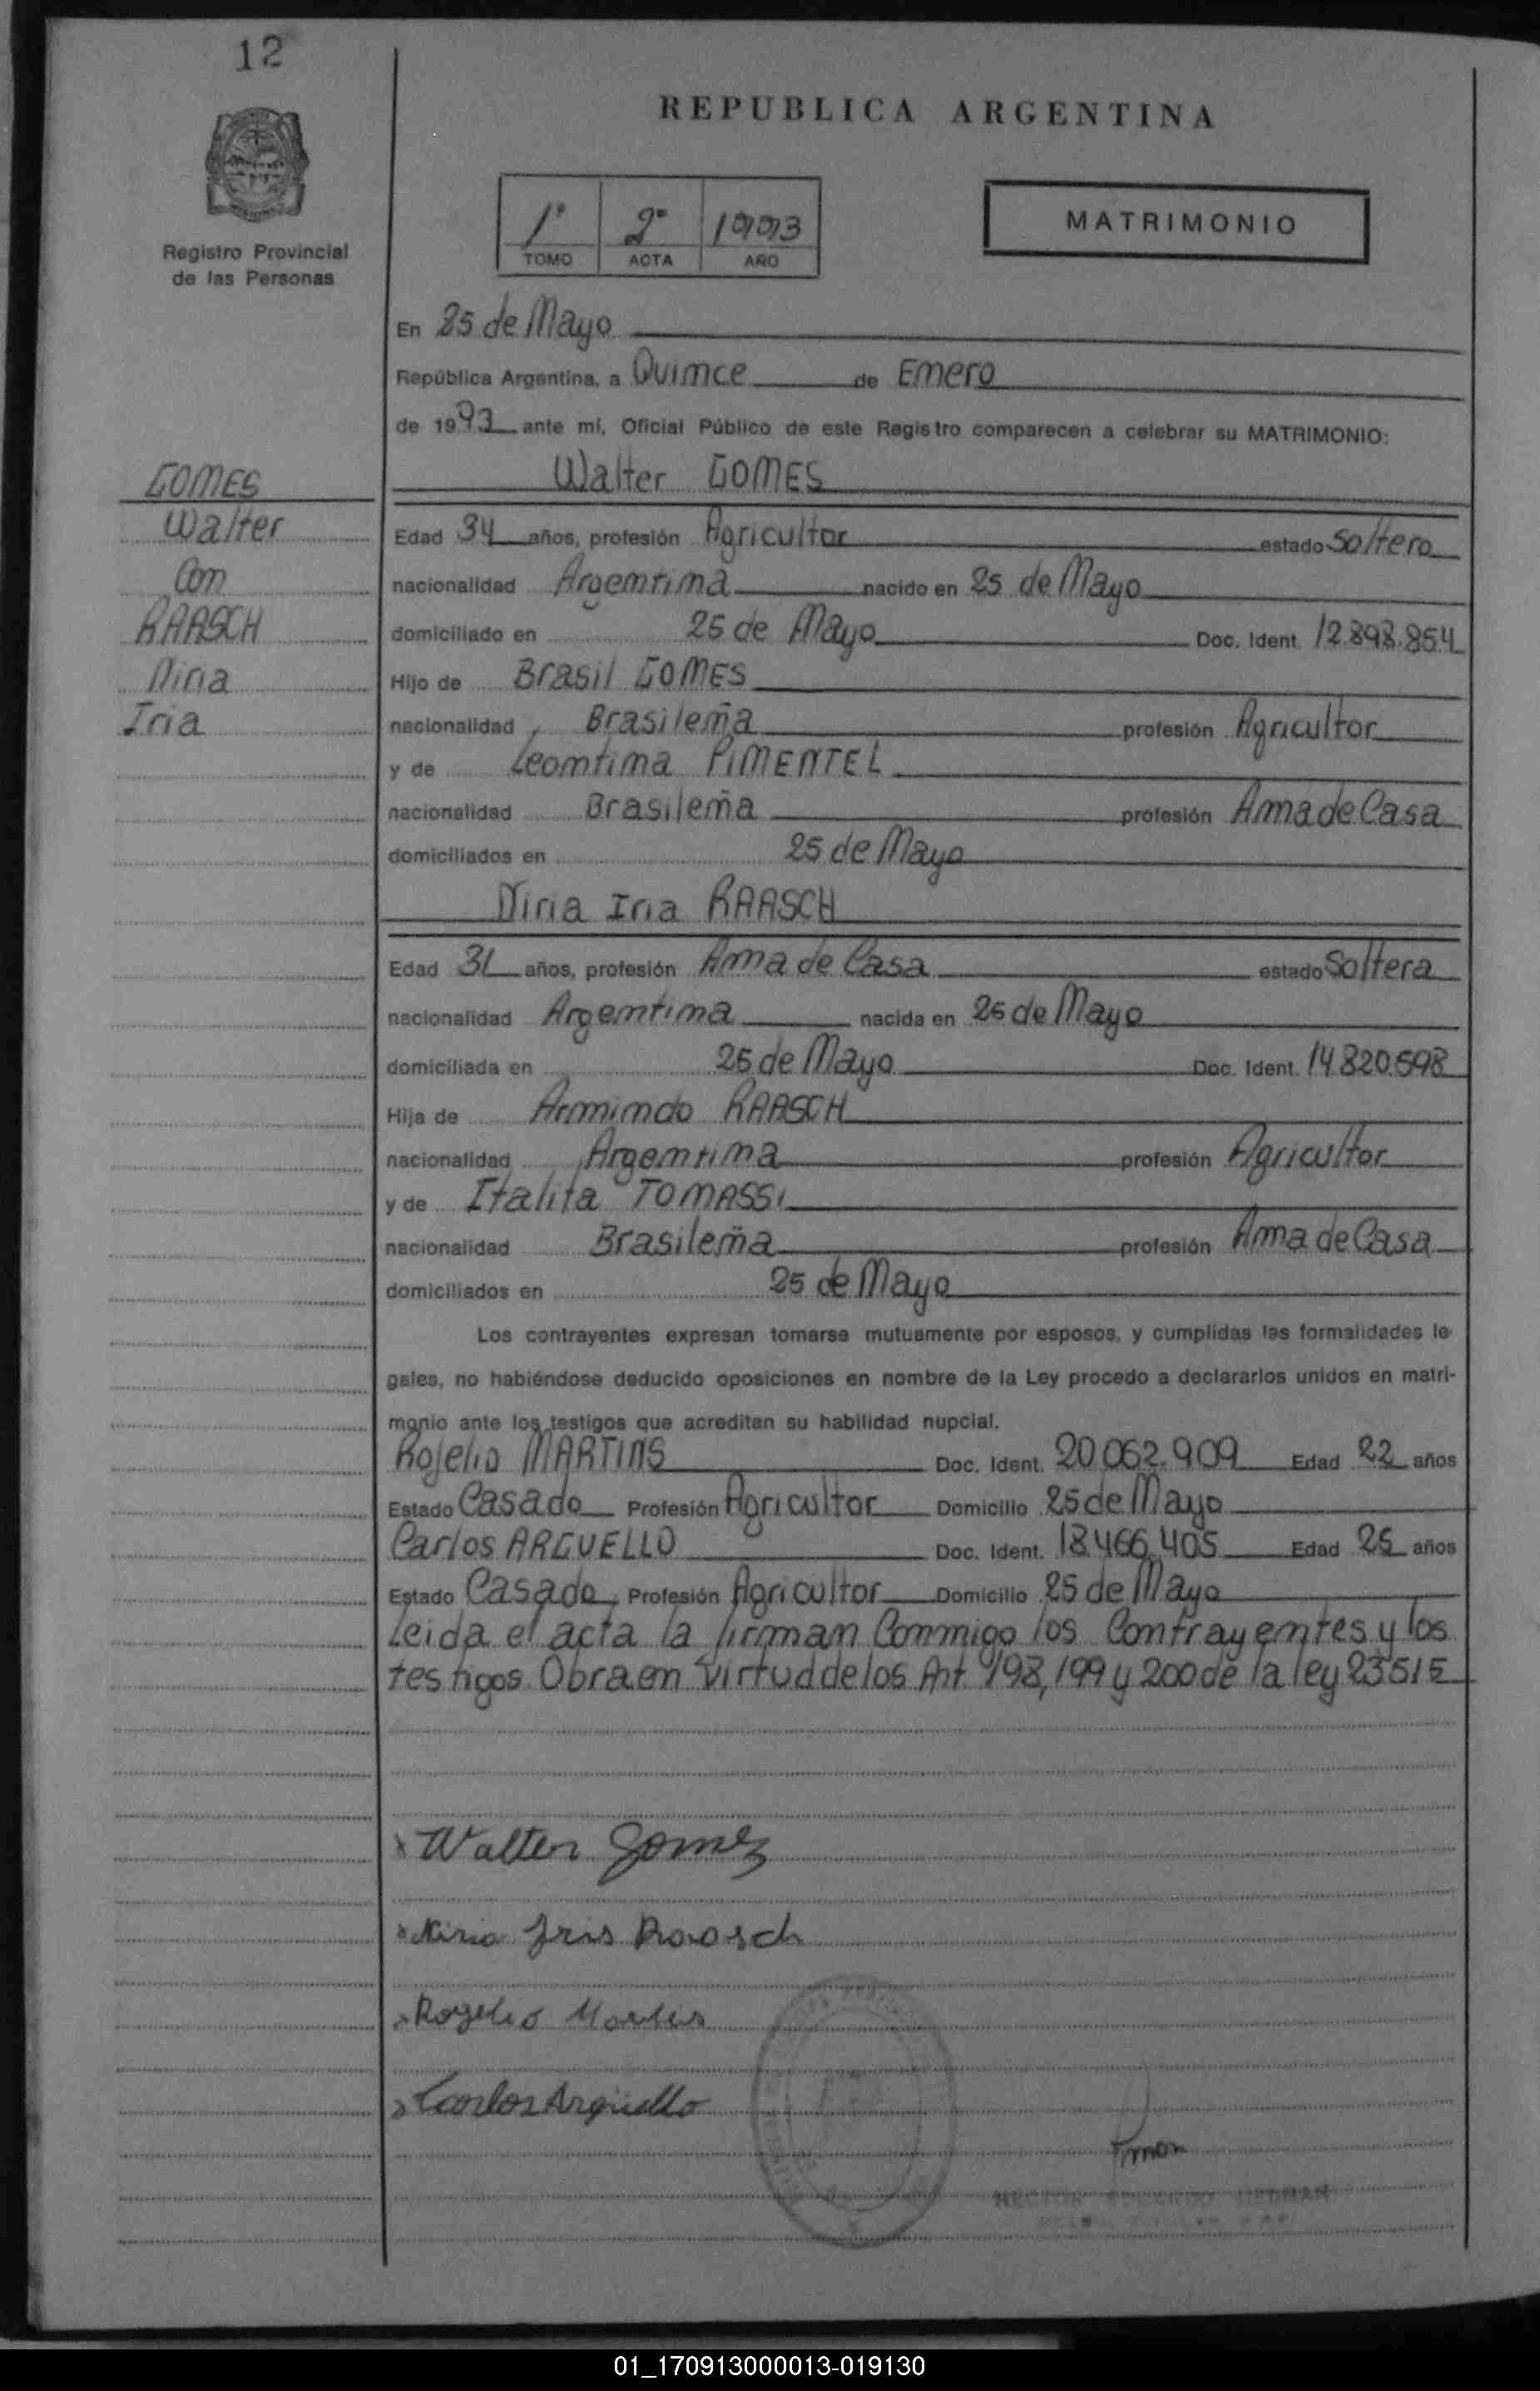 12
REPUBLICA ARGENTINA
Registro Provincial
de las Personas
1º 2º 1993
TOMO ACTA AÑO
MATRIMONIO
En 25 de Mayo
República Argentina, a Quince de Enero
de 1993 ante mí, Oficial Público de este Registro comparecen a celebrar su MATRIMONIO:
GOMES
Walter
Con
RAASCH
Niria
Iria
Walter GOMES
Edad 34 años, profesión Agricultor estado Soltero
nacionalidad Argentina nacido en 25 de Mayo
domiciliado en 25 de Mayo Doc. Ident. 12.898.854
Hijo de Brasil GOMES
nacionalidad Brasileña profesión Agricultor
y de Leontina PIMENTEL
nacionalidad Brasileña profesión Ama de Casa
domiciliados en 25 de Mayo
Niria Iria RAASCH
Edad 31 años, profesión Ama de Casa estado Soltera
nacionalidad Argentina nacida en 25 de Mayo
domiciliada en 25 de Mayo Doc. Ident. 14.820.598
Hija de Armindo RAASCH
nacionalidad Argentina profesión Agricultor
y de Italita TOMASSI
nacionalidad Brasileña profesión Ama de Casa
domiciliados en 25 de Mayo
Los contrayentes expresan tomarse mutuamente por esposos, y cumplidas las formalidades le-
gales, no habiéndose deducido oposiciones en nombre de la Ley procedo a declararlos unidos en matri-
monio ante los testigos que acreditan su habilidad nupcial.
Rojelio MARTINS Doc. Ident. 20.062.909 Edad 22 años
Estado Casado Profesión Agricultor Domicilio 25 de Mayo
Carlos ARGUELLO Doc. Ident. 18.466.405 Edad 25 años
Estado Casado Profesión Agricultor Domicilio 25 de Mayo
Leida el acta la firman Conmigo los Contrayentes y los
testigos. Obra en virtud de los Art. 198, 199 y 200 de la ley 23515
x Walter Gomez
x Niria Iris Raasch
x Rogelio Martins
x Carlos Argüello
HECTOR EDUARDO
01_170913000013-019130